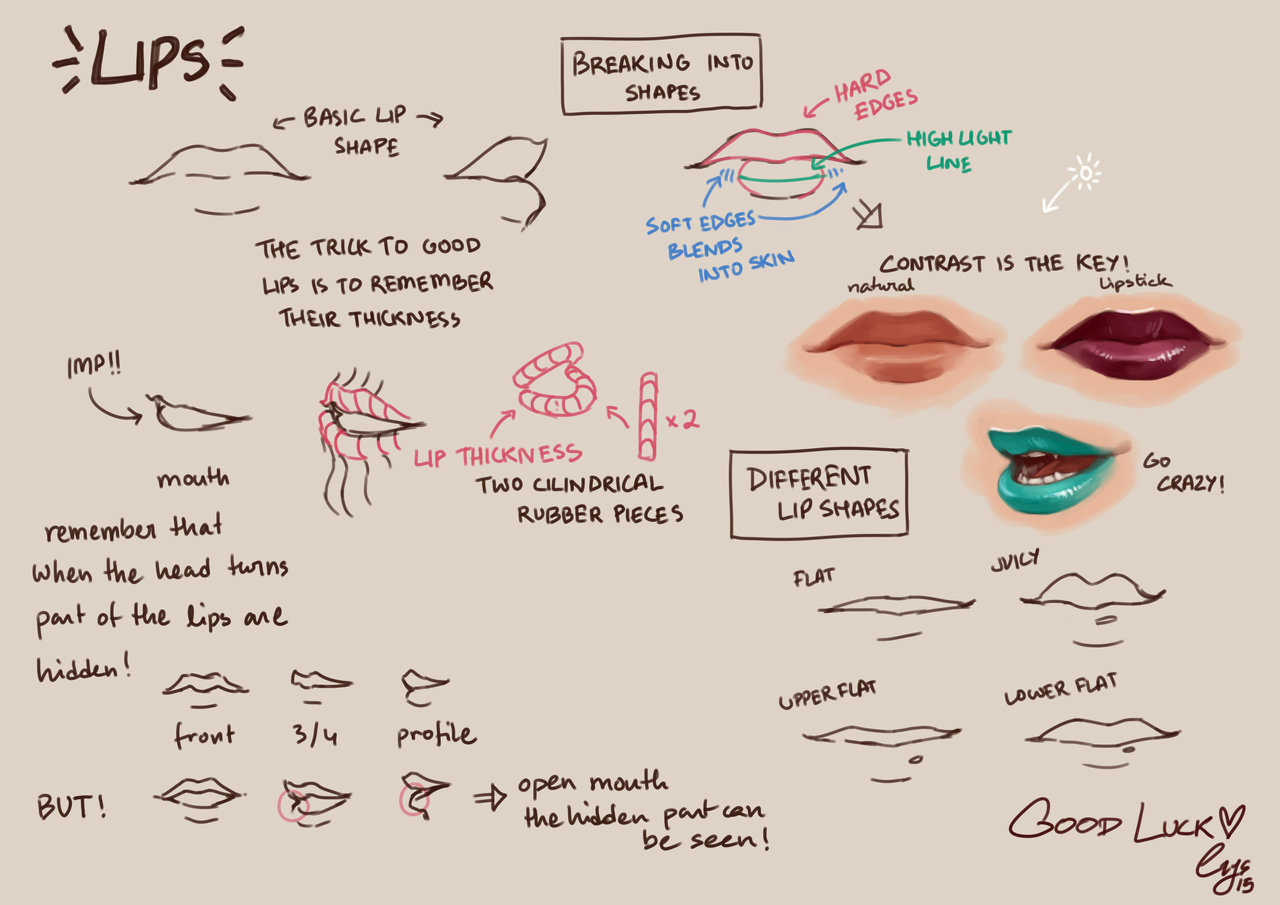 LIPS
← BASIC LIP →
SHAPE
THE TRICK TO GOOD
LIPS IS TO REMEMBER
THEIR THICKNESS
BREAKING INTO
SHAPES
HARD
EDGES
HIGHLIGHT
LINE
SOFT EDGES
BLENDS
INTO SKIN
CONTRAST IS THE KEY!
natural
Lipstick
GO
CRAZY!
IMP!!
mouth
LIP THICKNESS
x2
TWO CILINDRICAL
RUBBER PIECES
remember that
when the head turns
part of the lips are
hidden!
front
3/4
profile
BUT!
open mouth
the hidden part can
be seen!
DIFFERENT
LIP SHAPES
FLAT
JUICY
UPPER FLAT
LOWER FLAT
GOOD LUCK
15